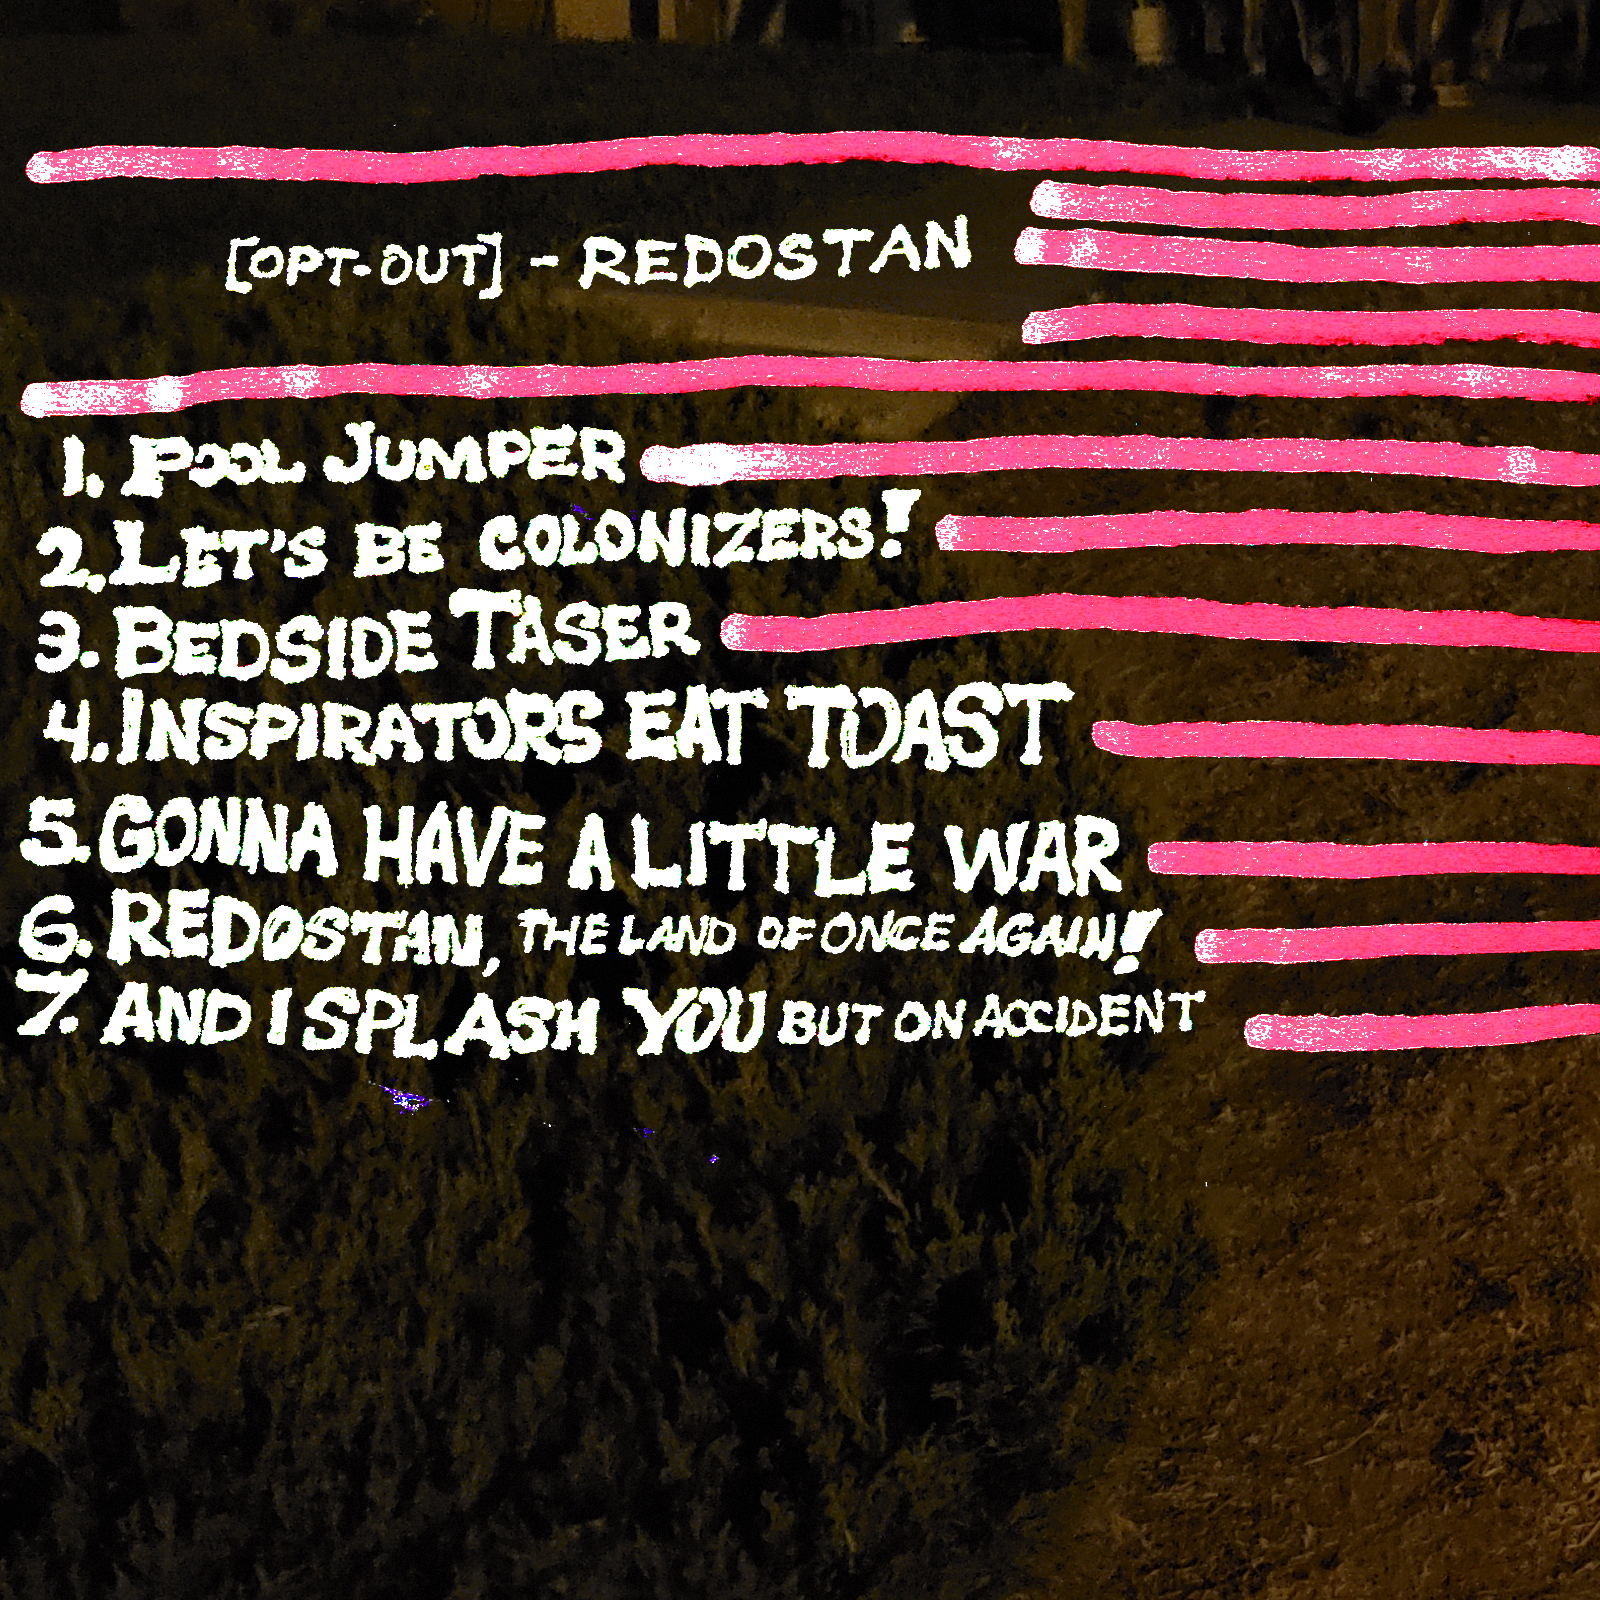 [OPT-OUT] - REDOSTAN
1. POOL JUMPER
2. LET'S BE COLONIZERS!
3. BEDSIDE TASER
4. INSPIRATORS EAT TOAST
5. GONNA HAVE A LITTLE WAR
6. REDOSTAN, THE LAND OF ONCE AGAIN!
7. AND I SPLASH YOU BUT ON ACCIDENT